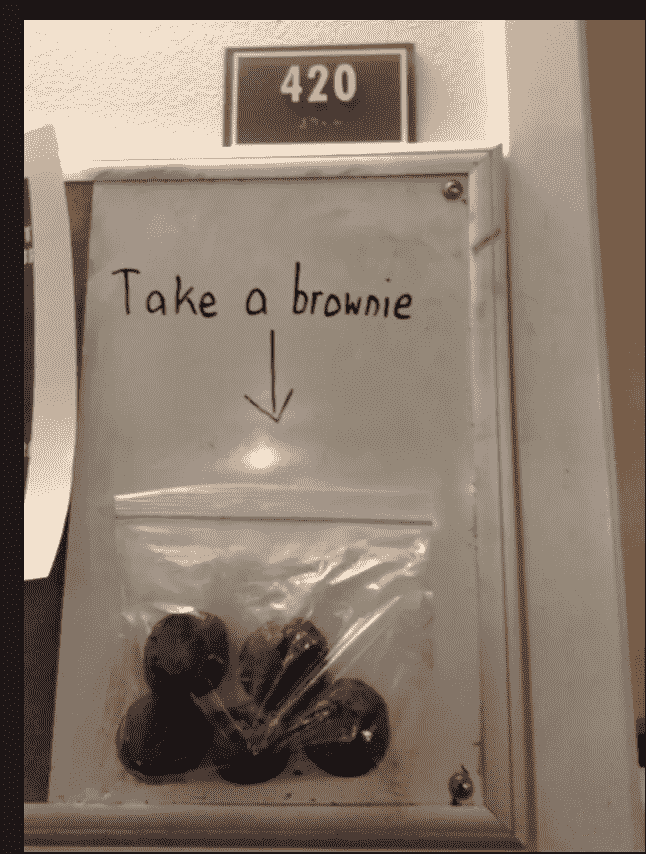 420
Take a brownie